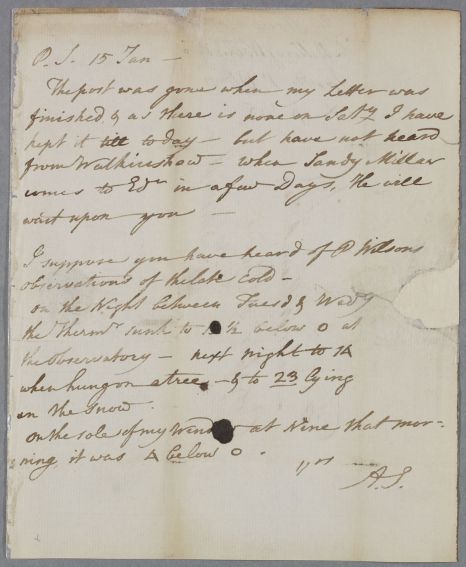 P.S. 15 Jan —
The post was gone when my Letter was
finished, & as there is none on Satʸ I have
kept it till to day — but have not heard
from Walkinshaw — when Sandy Miller
comes to Edʳ in a few Days, He will
wait upon you —
I suppose you have heard of P Wilsons
observations of the late Cold —
on the Night between Tuesd & Wedʸ
the Thermʳ sunk to ½ below 0 at
the Observatory — next night to 14
when hung on a tree — & to 23 lying
on the Snow.
on the sole of my Window at Nine that mor-
ning, it was 4 below 0.
yrs
A.S.